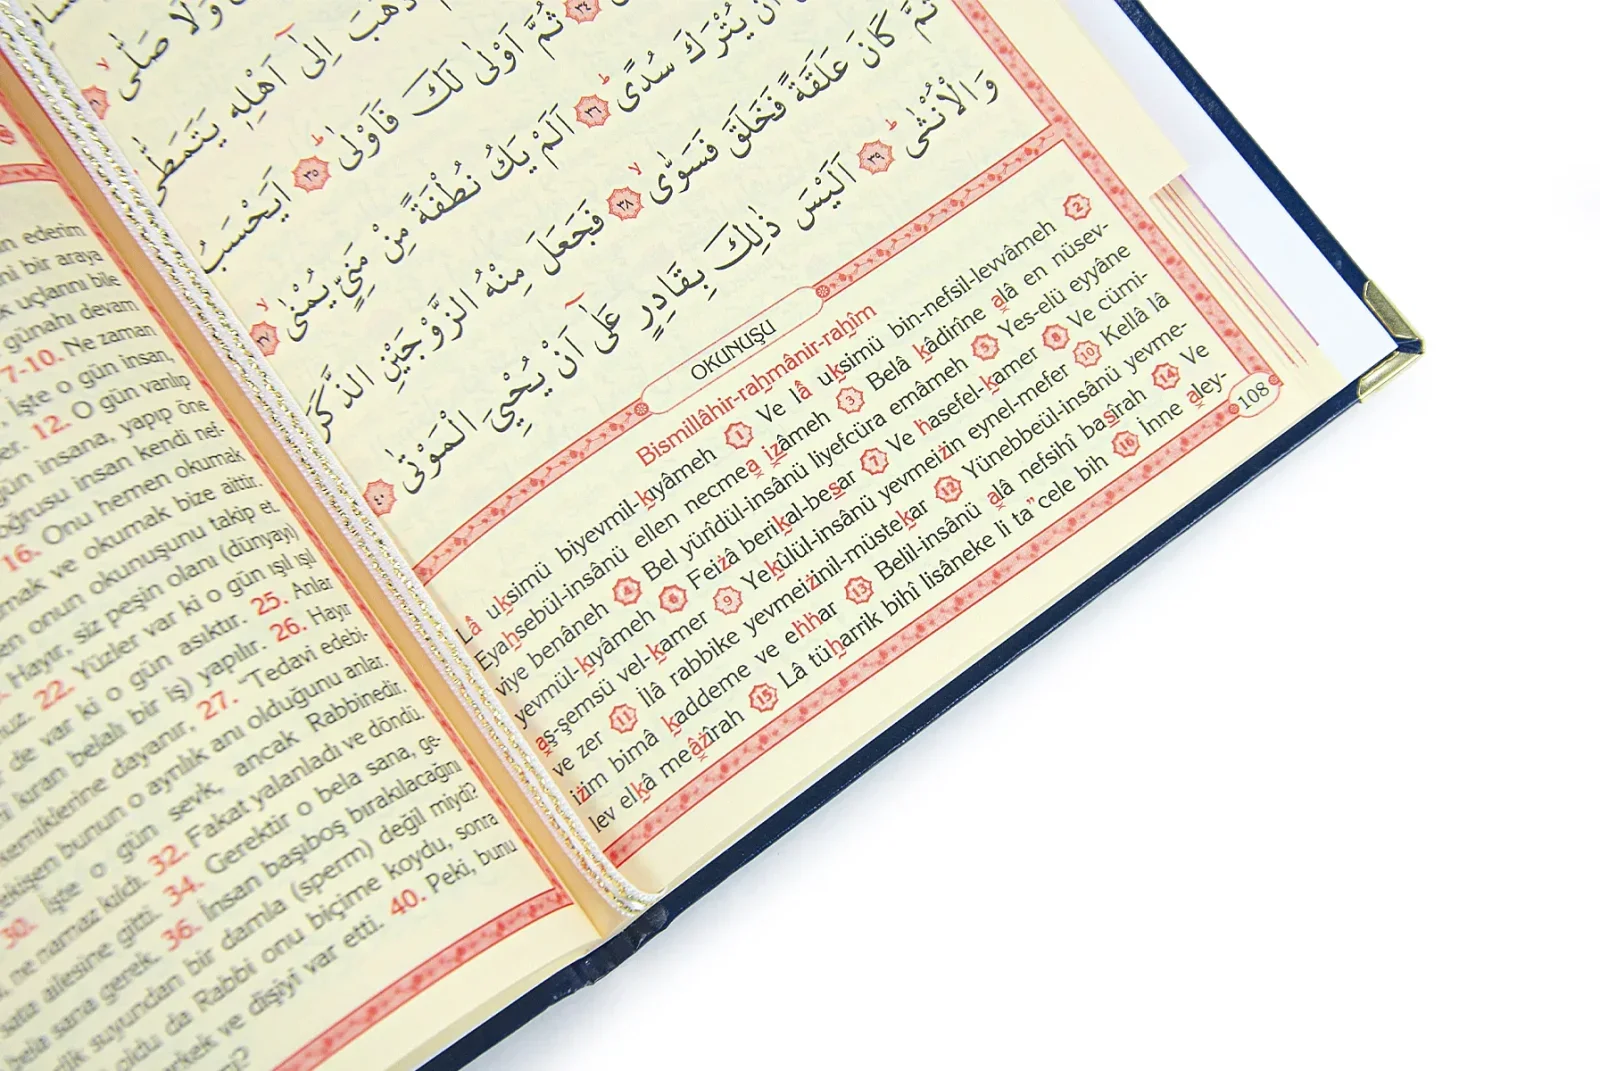 ün ederim
ni bir araya
k uçlarını bile
günahı devam
7-10. Ne zaman
İşte o gün insan,
er. 12. O gün varılıp
gün insana, yapıp öne
oğrusu insan kendi nef-
16. Onu hemen okumak
mak ve okumak bize aittir.
en onun okunuşunu takip et.
Hayır, siz peşin olanı (dünyayı)
nuz. 22. Yüzler var ki o gün ışıl ışıl
de var ki o gün asıktır. 25. Anlar
ni kıran belalı bir iş) yapılır. 26. Hayır
kemiklerine dayanır, 27. "Tedavi edebi-
ekişen bunun o ayrılık anı olduğunu anlar.
30. İşte o gün sevk, ancak Rabbinedir.
ne namaz kıldı. 32. Fakat yalanladı ve döndü.
sata ailesine gitti. 34. Gerektir o bela sana, ge-
bela sana gerek. 36. İnsan başıboş bırakılacağını
ilk suyundan bir damla (sperm) değil miydi?
oldu da Rabbi onu biçime koydu, sonra
erkek ve dişiyi var etti. 40. Peki, bunu
وَلَا صَلّٰى
ذَهَبَ اِلٰٓى اَهْلِه۪ يَتَمَطّٰى
٣٤ ثُمَّ اَوْلٰى لَكَ فَاَوْلٰى ٣٥ اَيَحْسَبُ
اَنْ يُتْرَكَ سُدًى ٣٦ اَلَمْ يَكُ نُطْفَةً مِنْ مَنِيٍّ يُمْنٰى ٣٧
ثُمَّ كَانَ عَلَقَةً فَخَلَقَ فَسَوّٰى ٣٨ فَجَعَلَ مِنْهُ الزَّوْجَيْنِ الذَّكَرَ
وَالْاُنْثٰى ٣٩ اَلَيْسَ ذٰلِكَ بِقَادِرٍ عَلٰٓى اَنْ يُحْيِيَ الْمَوْتٰى ٤٠
OKUNUŞU
Bismillâhir-rahmânir-rahîm
Lâ uksimü biyevmil-kıyâmeh 1 Ve lâ uksimü bin-nefsil-levvâmeh 2
Eyahsebül-insânü ellen necmea izâmeh 3 Belâ kâdirîne alâ en nüsev-
viye benâneh 4 Bel yürîdül-insânü liyefcüra emâmeh 5 Yes-elü eyyâne
yevmül-kıyâmeh 6 Feizâ berikal-besar 7 Ve hasefel-kamer 8 Ve cümi-
aş-şemsü vel-kamer 9 Yekûlül-insânü yevmeizin eynel-mefer 10 Kellâ lâ
ve zer 11 İlâ rabbike yevmeizinil-müstekar 12 Yünebbeül-insânü yevme-
izim bimâ kaddeme ve ehhar 13 Belil-insânü alâ nefsihî basîrah 14 Ve
lev elkâ meâzîrah 15 Lâ tüharrik bihî lisâneke li ta"cele bih 16 İnne aley-
108